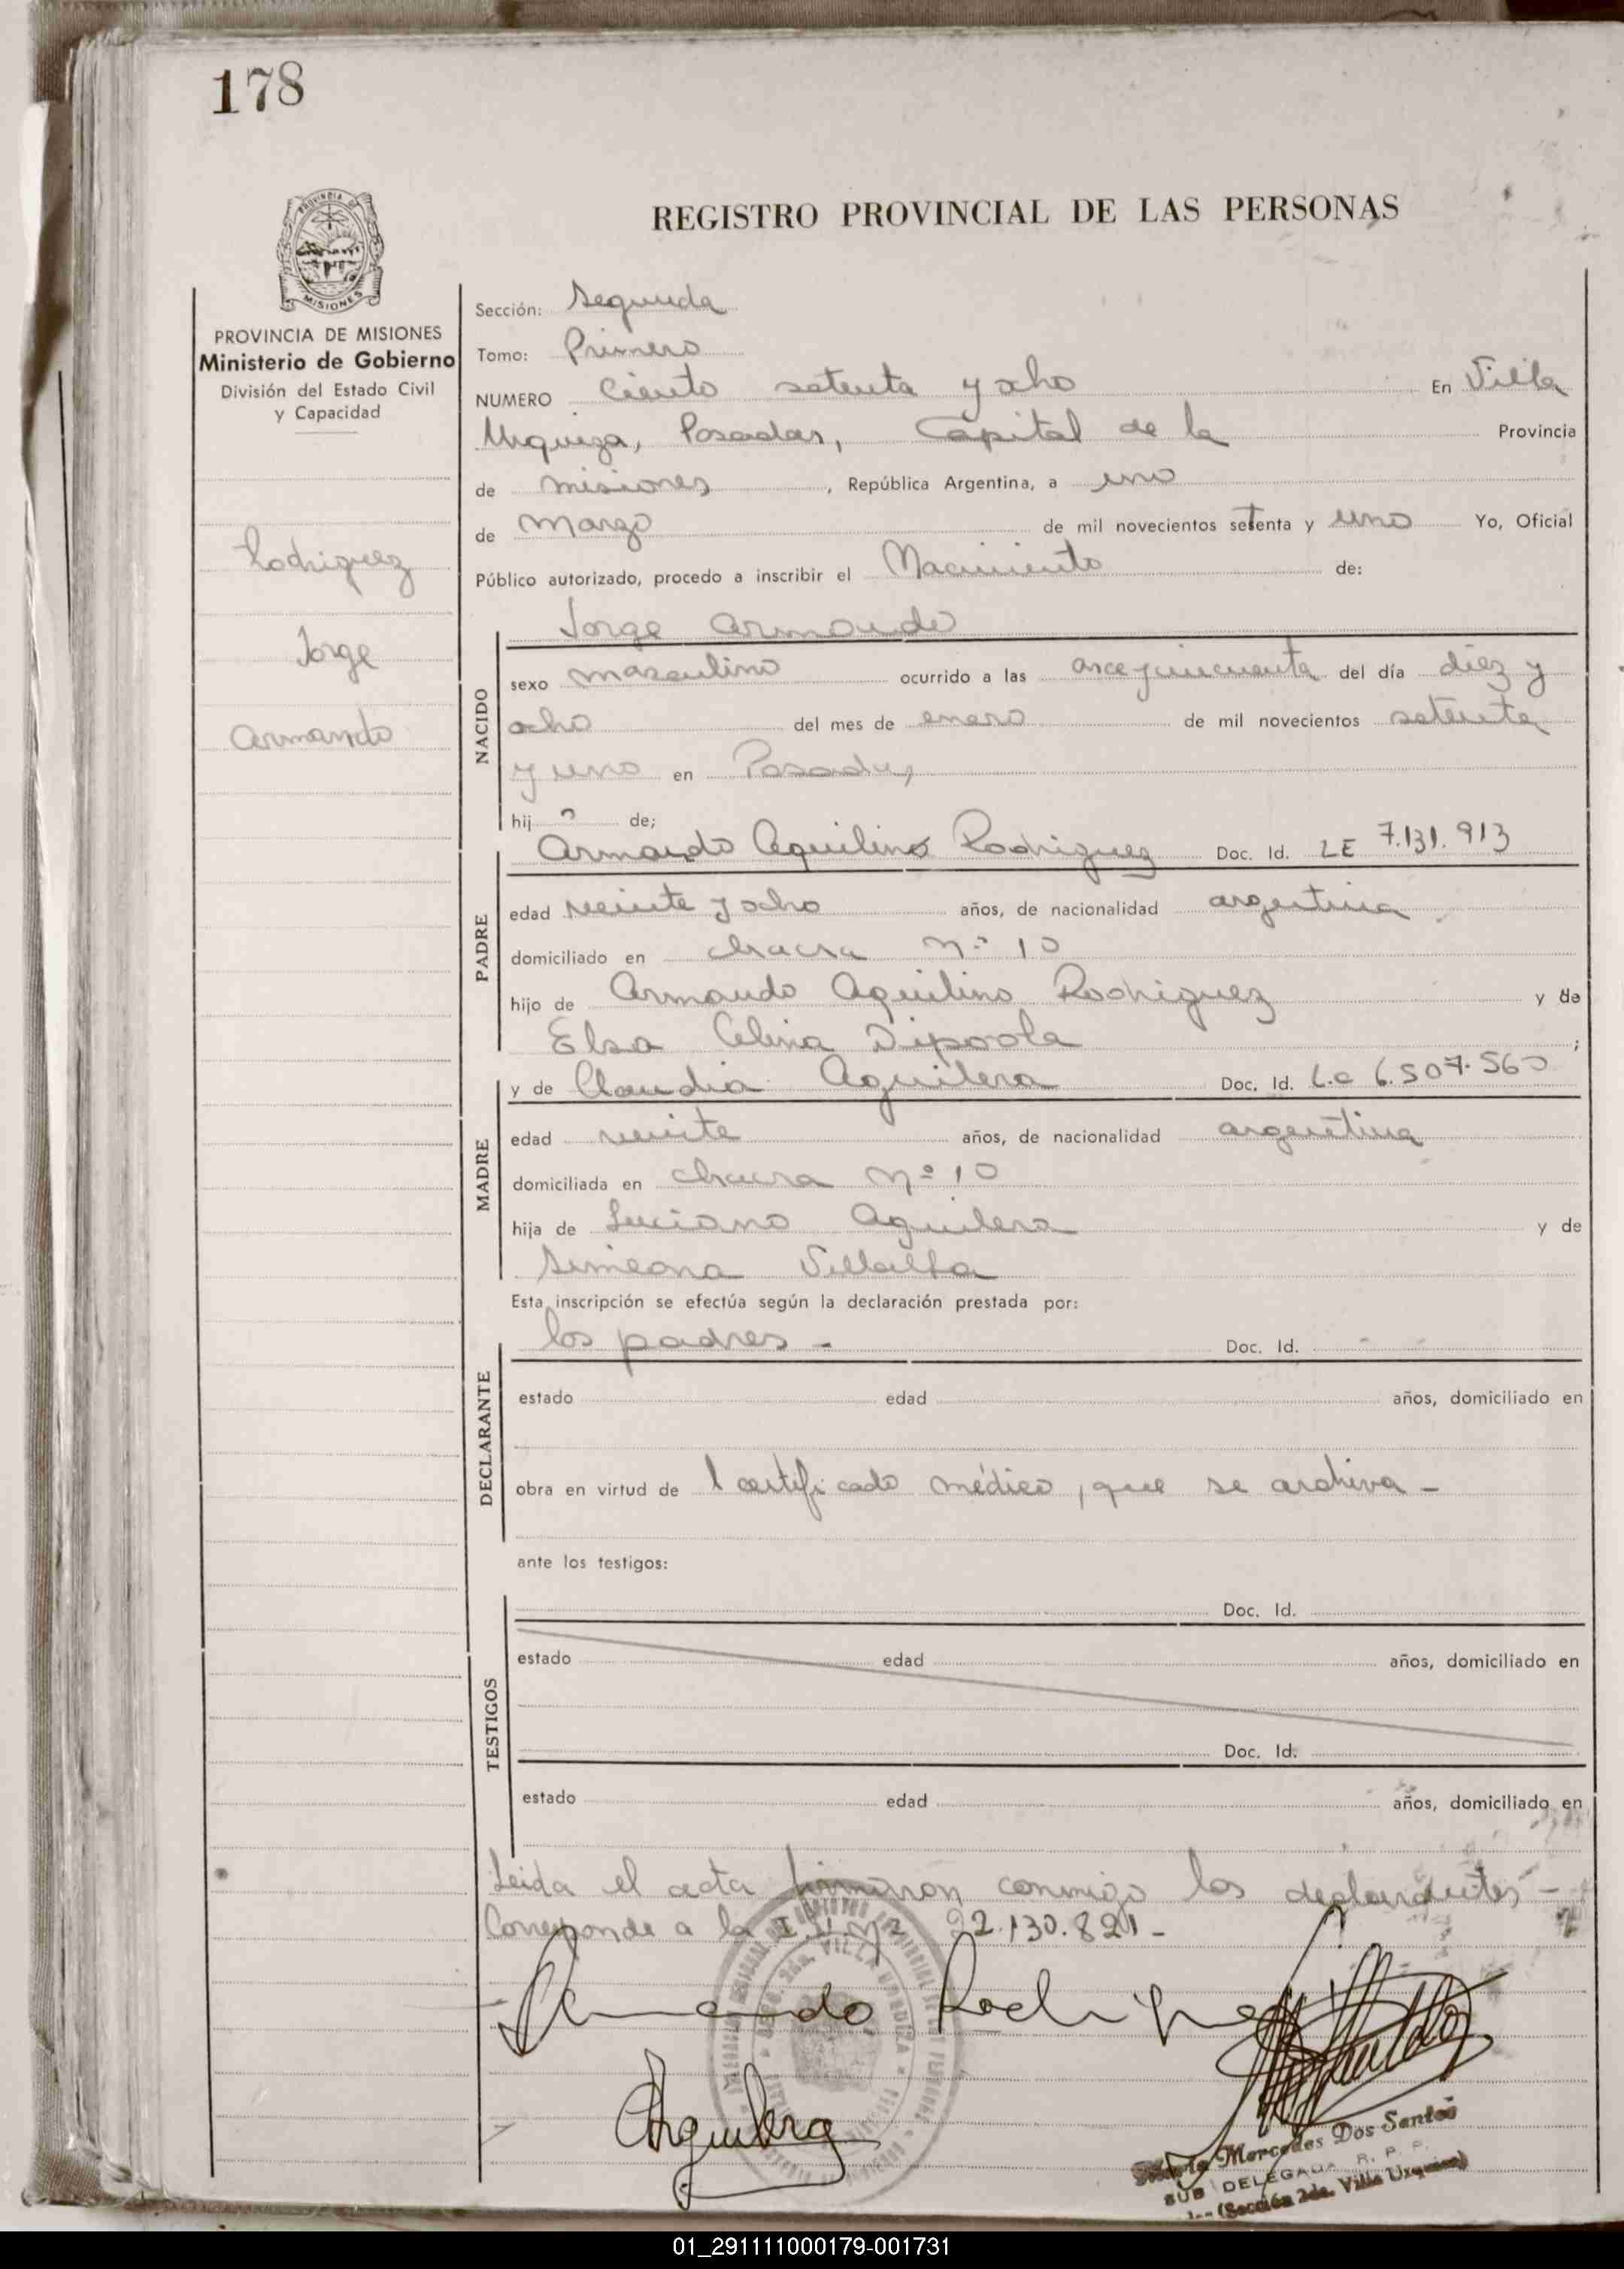 178
REGISTRO PROVINCIAL DE LAS PERSONAS
PROVINCIA DE
MISIONES
PROVINCIA DE MISIONES
Ministerio de Gobierno
División del Estado Civil
y Capacidad
Rodriguez
Jorge
Armando
Sección: Segunda
Tomo: Primero
NUMERO Ciento setenta y ocho En Villa
Urquiza, Posadas, Capital de la Provincia
de misiones, República Argentina, a uno
de Marzo de mil novecientos setenta y uno Yo, Oficial
Público autorizado, procedo a inscribir el Nacimiento de:
NACIDO
Jorge Armando
sexo masculino ocurrido a las once y cincuenta del día diez y
ocho del mes de enero de mil novecientos setenta
y uno en Posadas,
hij o de;
PADRE
Armando Aquilino Rodriguez Doc. Id. LE 7.131.913
edad veinte y ocho años, de nacionalidad argentina
domiciliado en chacra Nº 10
hijo de Armando Aquilino Rodriguez y de
Elsa Celina ;
MADRE
y de Claudia Aguilera Doc. Id. L.C 6.507.560
edad veinte años, de nacionalidad argentina
domiciliada en chacra Nº 10
hija de Luciano Aguilera y de
Simeona Villalba
Esta inscripción se efectúa según la declaración prestada por:
DECLARANTE
los padres - Doc. Id.
estado edad años, domiciliado en
obra en virtud de 1 certificado médico, que se archiva -
ante los testigos:
TESTIGOS
Doc. Id.
estado edad años, domiciliado en
Doc. Id.
estado edad años, domiciliado en
Leida el acta firmaron conmigo los declarantes -
Corresponde a la I.D. Nº 22.130.821 -
Armando Rodriguez
Aguilera
Mercedes Dos Santos
SUB DELEGADA R. P. P.
(Sección 2da. Villa Urquiza)
01_291111000179-001731